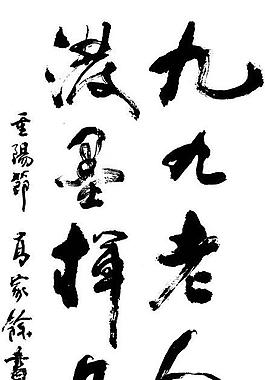 九九老人
潑墨揮
重陽節 高家餘書